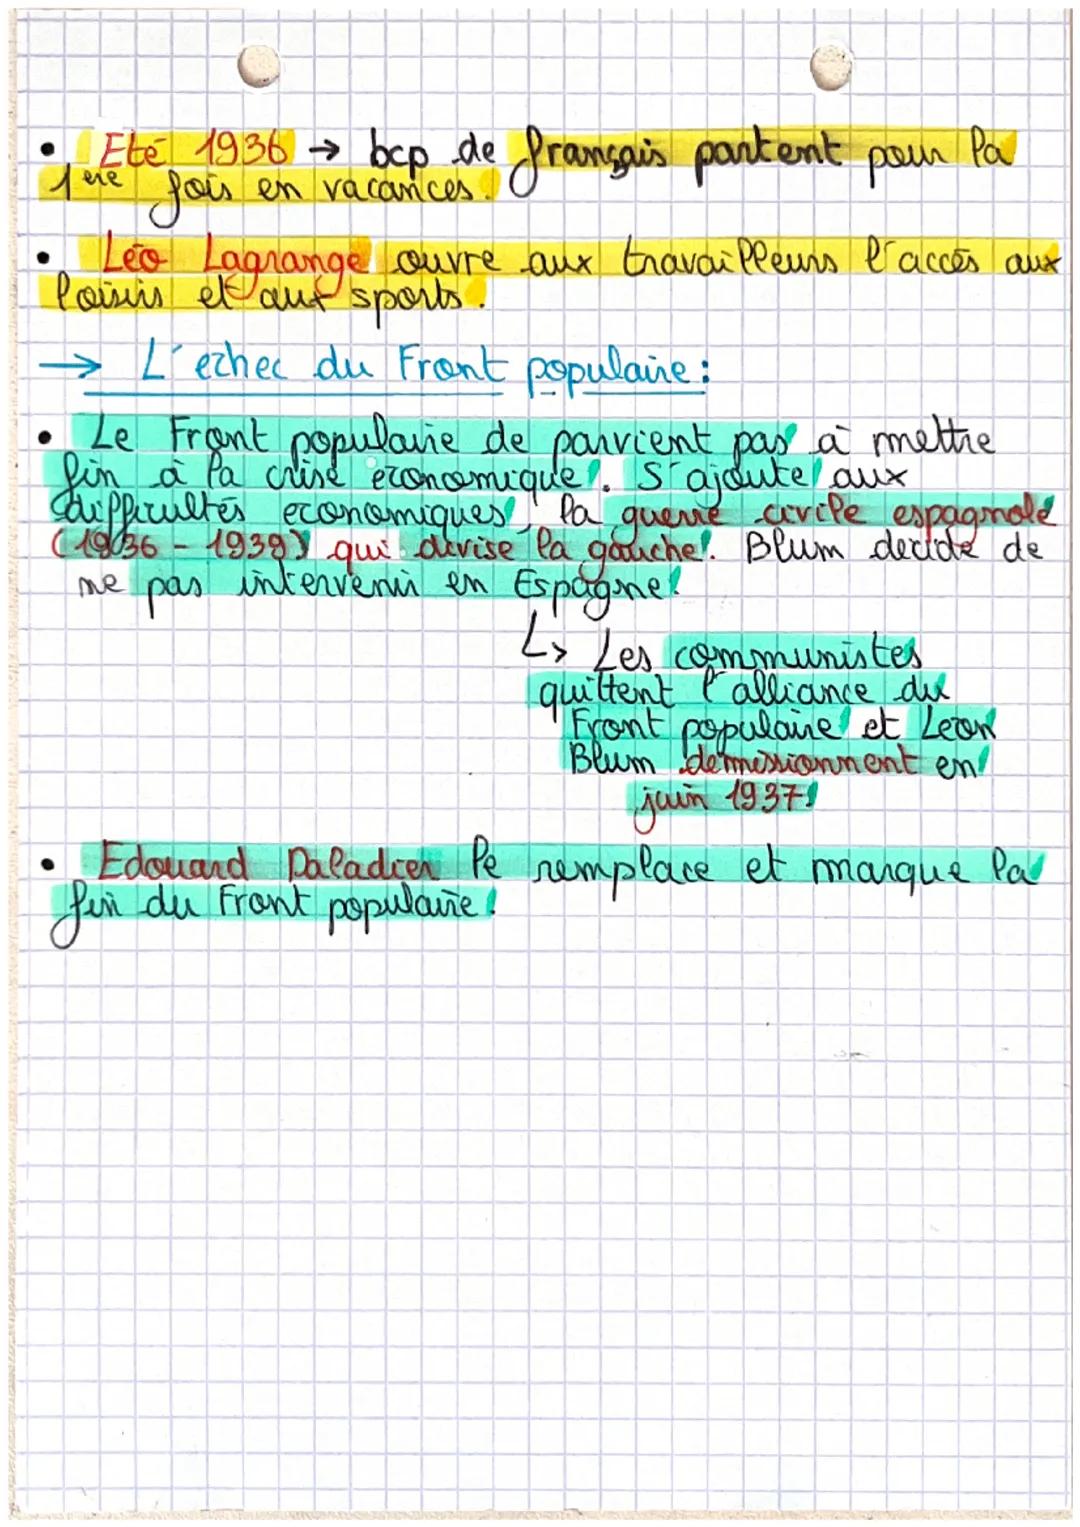 • Eté 1936 → bcp de français partent pour la
1ère fois en vacances.
• Léo Lagrange ouvre aux travailleurs l'accès aux
loisirs et aux sports.
→ L'echec du Front populaire :
• Le Front populaire de parvient pas à mettre
fin à la crise economique. S'ajoute aux
difficultés economiques, la guerre civile espagnole
(1936 - 1939) qui divise la gauche. Blum decide de
ne pas intervenir en Espagne.
↳ Les communistes
quittent l'alliance du
Front populaire et Leon
Blum demissionnent en
juin 1937.
• Edouard Daladier le remplace et marque la
fin du Front populaire.